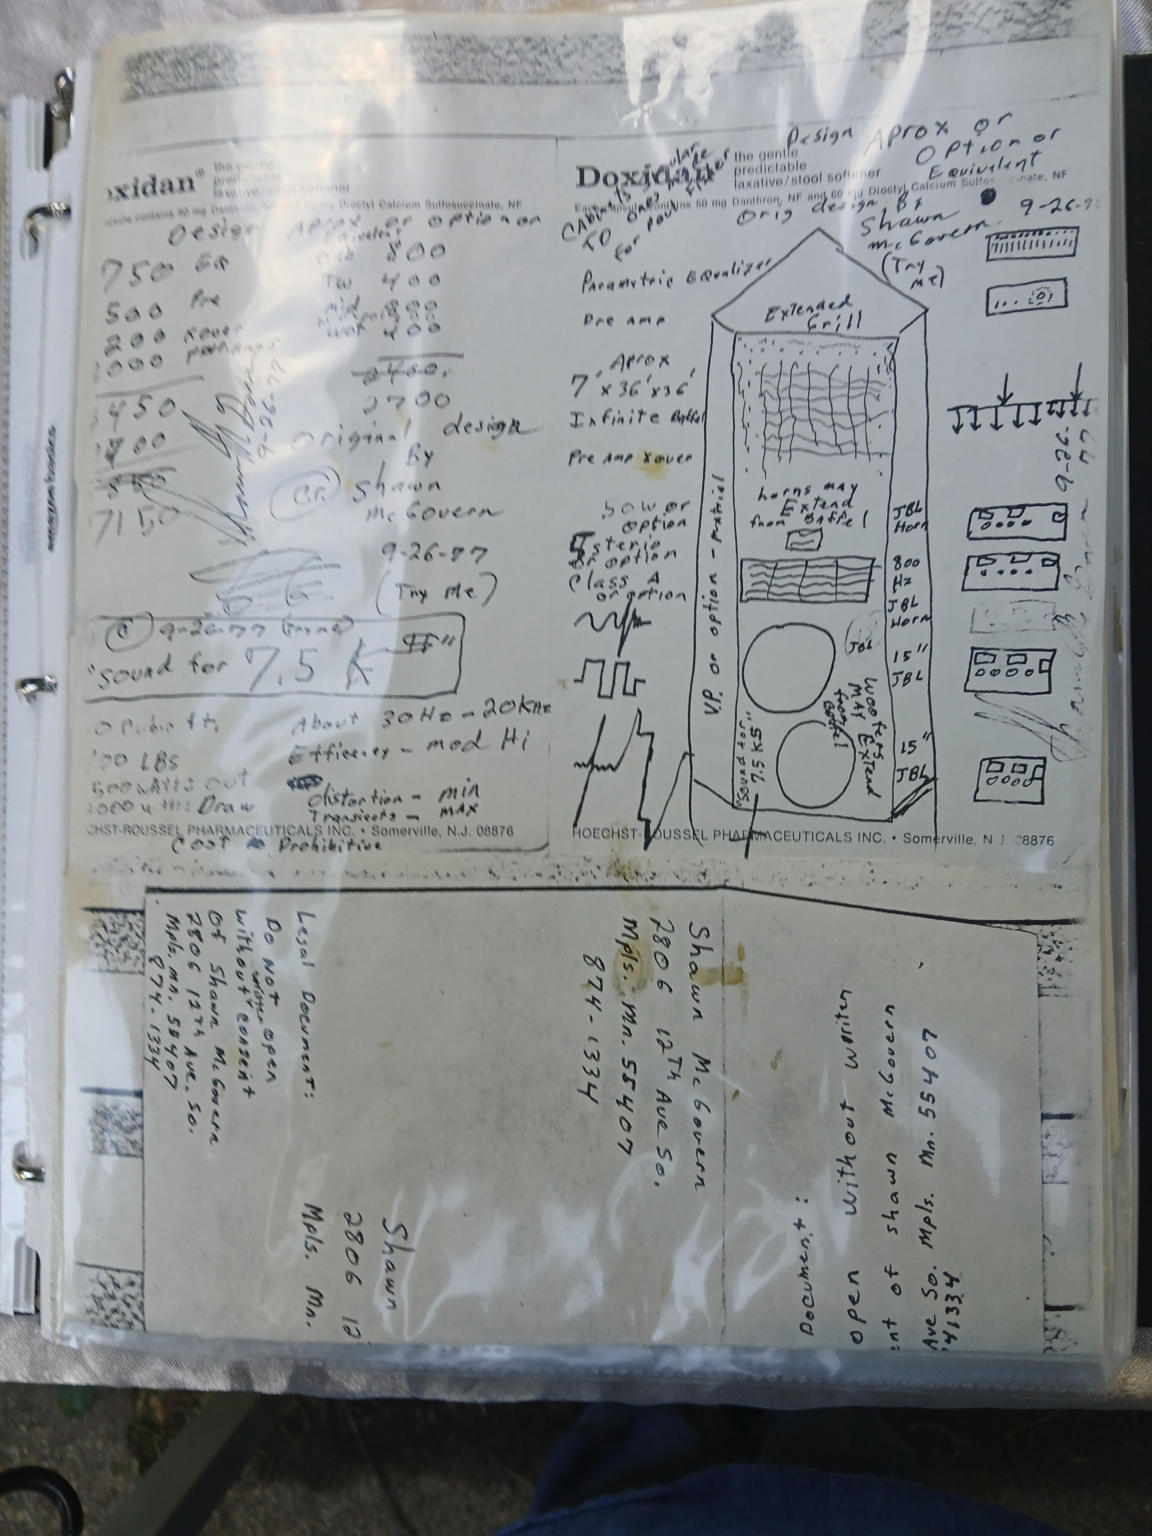 oxidan® the gentle
predictable
laxative/stool softener
contains 50 mg Danthron, NF and 60 mg Dioctyl Calcium Sulfosuccinate, NF
Design Aprox or option or
Equivalent
750 EQ 800
500 Pre Tw 400
200 xover Mid 800
000 400
2400.
450 2700
900
7150
9-26-77
Original design
By
Shawn
McGovern
9-26-77
(Try Me)
© 9-26-77 (Try me)
"Sound for 7.5 K $"
0 Cubic ft. About 30 Hz - 20 KHz
00 LBS Efficiency - mod Hi
500 watts out Distortion - min
2000 watts Draw Transients - max
CHST-ROUSSEL PHARMACEUTICALS INC. • Somerville, N.J. 08876
Cost Prohibitive
Design Aprox or
Option or
Equivalent
Doxidan the gentle
predictable
laxative/stool softener
50 mg Danthron, NF and 60 mg Dioctyl Calcium Sulfosuccinate, NF
Orig design By
Shawn
McGovern
(Try
me)
9-26-7
Parametric Equalizer
Pre Amp
Extended
Grill
Aprox
7' x 36' x 36'
Infinite Baffel
Pre Amp xover
50 W or
option
Sterio
or option
Class A
or option
horns may
Extend
from Baffel
JBL
Horn
800
Hz
JBL
Horn
15"
JBL
JBL
15"
JBL
or option - matrial
Woofers
MAY Extend
from
Baffel
"Sound for
7.5 K$"
9-26-77
HOECHST-ROUSSEL PHARMACEUTICALS INC. • Somerville, N 8876
Legal Document:
Do Not open
without written consent
of Shawn McGovern
2806 12th Ave. So.
Mpls. Mn. 55407
874-1334
Shawn
2806 12
Mpls. Mn.
Shawn McGovern
2806 12Th Ave So.
Mpls. Mn. 55407
874-1334
Document:
open without writen
ent of shawn McGovern
Ave So. Mpls. Mn. 55407
41334